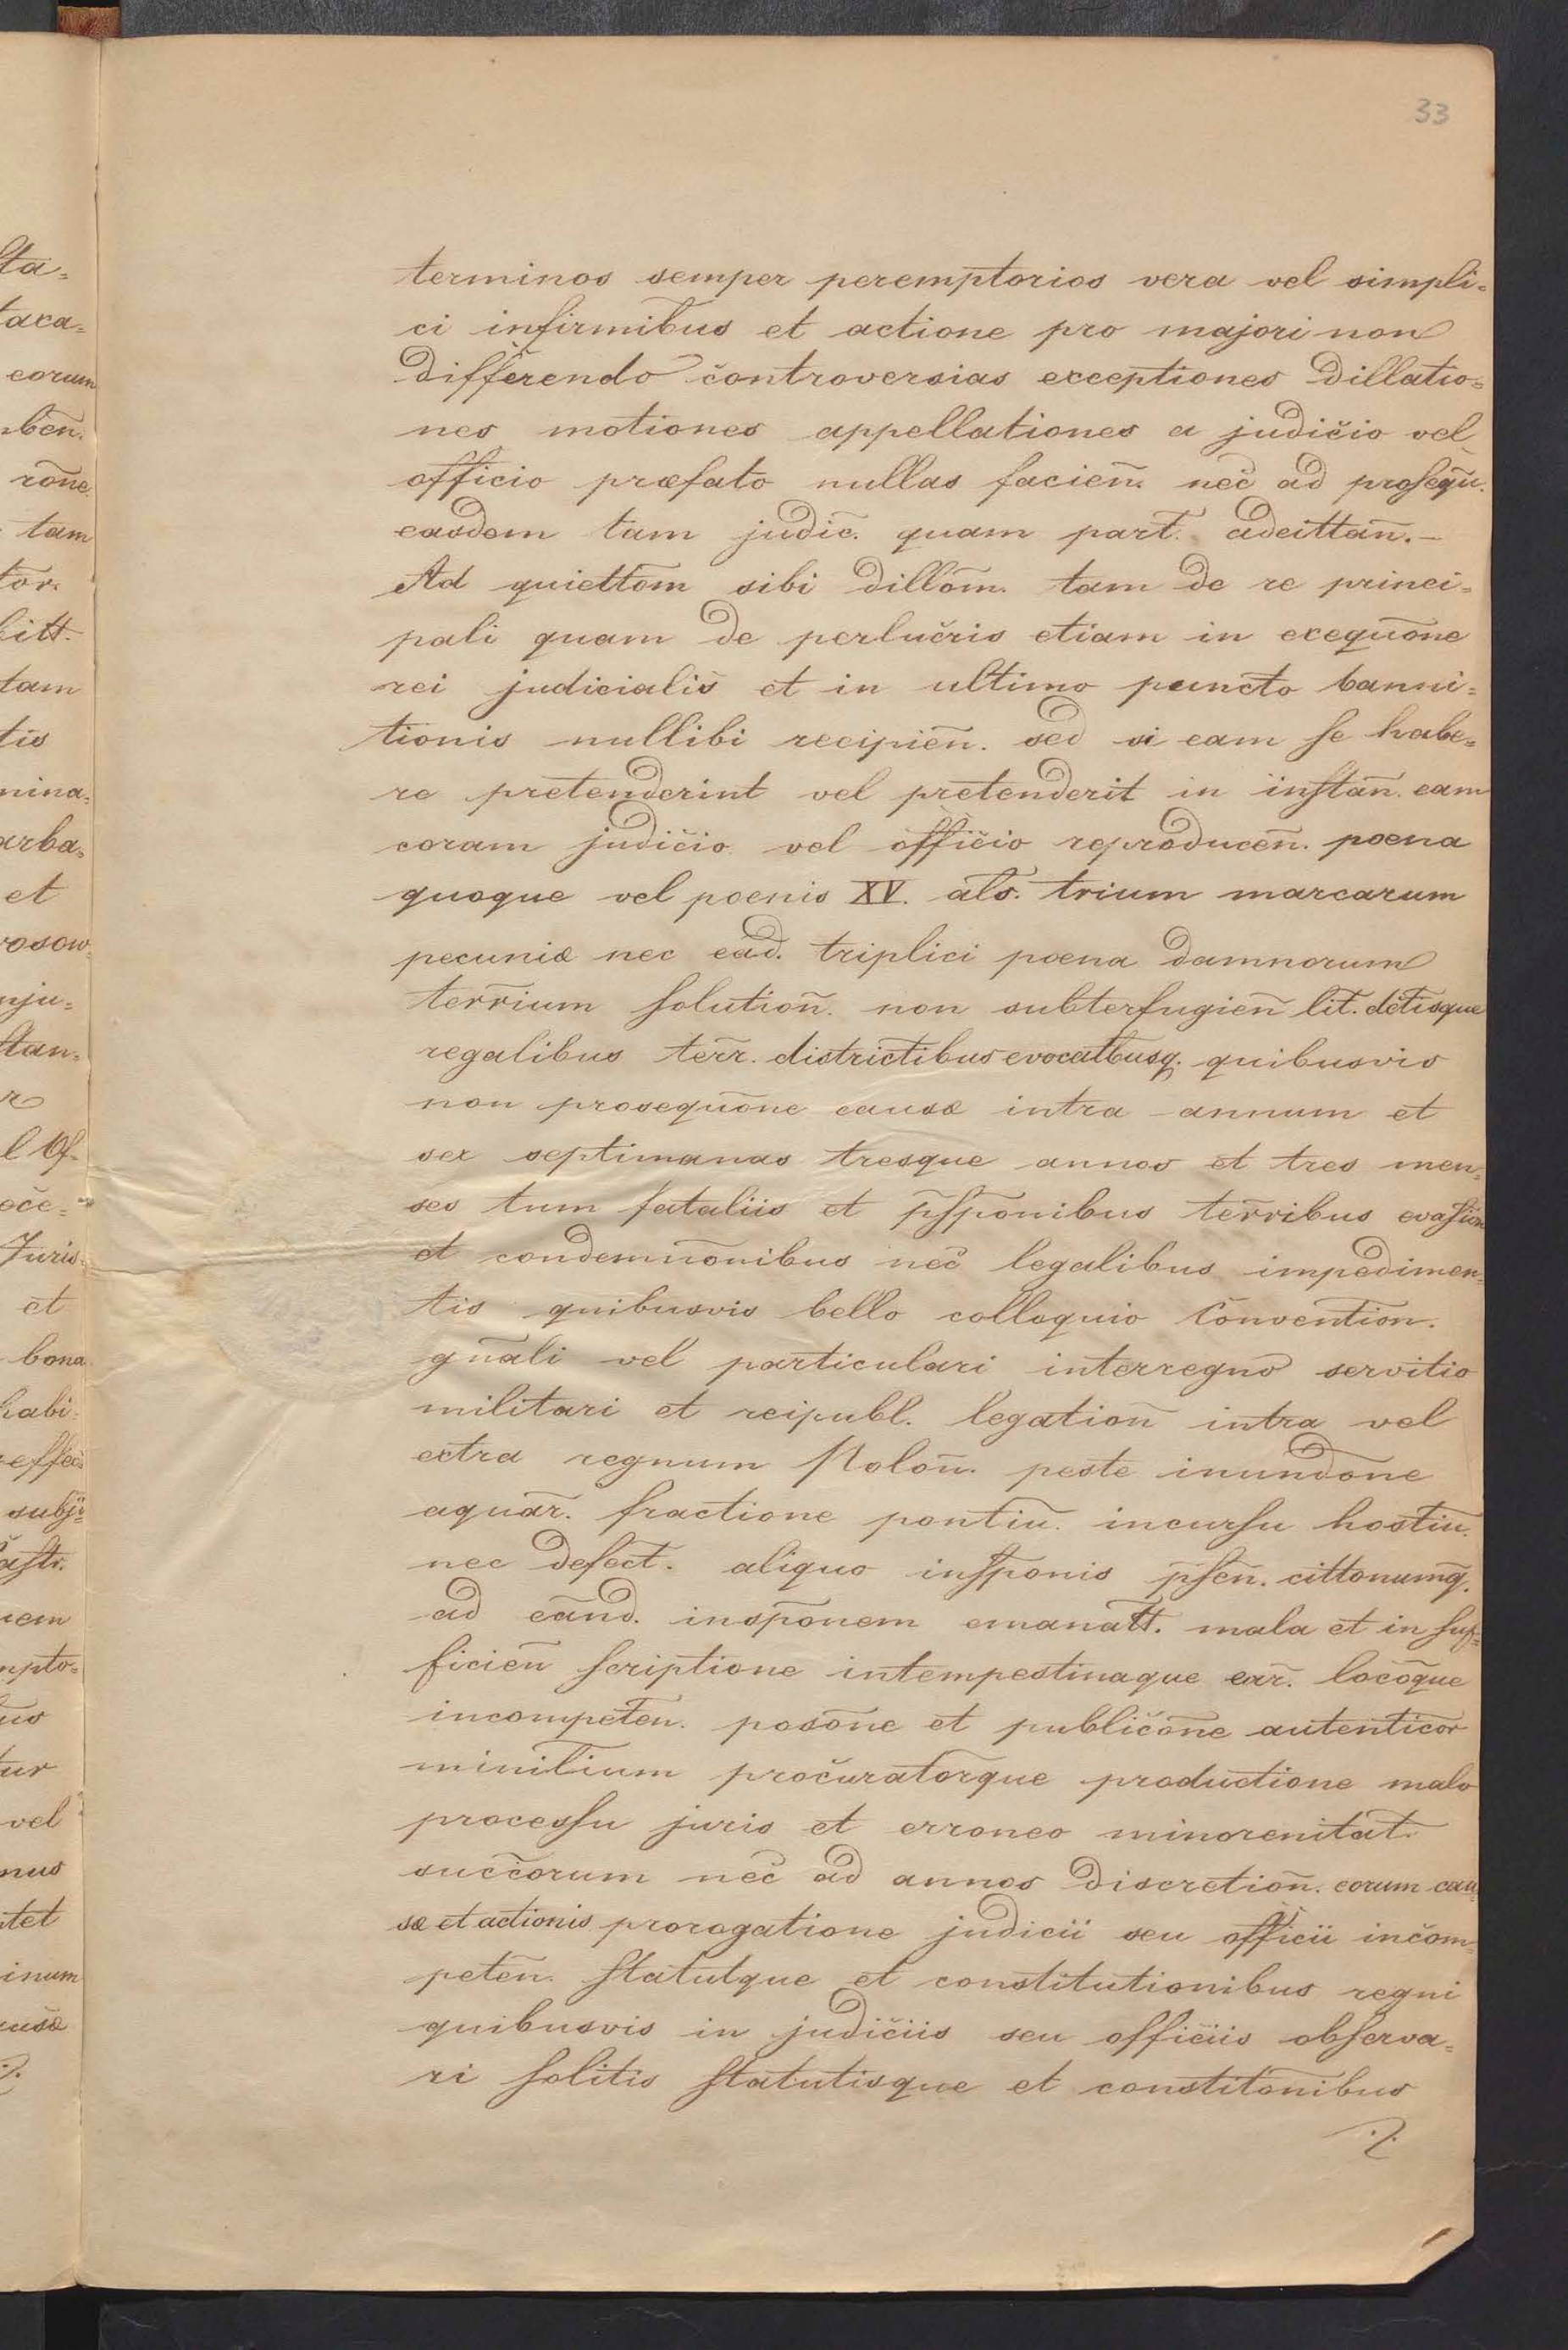 33
terminos semper peremptorios vera vel simpli=
ci infirmibus et actione pro majori non
differendo controversias exceptiones dillatio=
nes motiones appellationes a judicio vel
officio præfato nullas facien̄. nec̄ ad proseqū.
easdem tam judic̄. quam part̄. adcittan̄.—
Ad quiettom̄ sibi dillom̄. tam de re princi=
pali quam de perlucris etiam in exequōne
rei judicialis et in ultimo puncto banni=
tionis nullibi recipien̄. sed si eam se habe=
re pretenderint vel pretenderit in instan̄. eam
coram judicio vel officio reproducen̄. poena
quoque vel poenis XV. als̄. trium marcarum
pecuniæ nec ead. triplici poena damnorum
terr̄ium solution̄. non subterfugien̄ lit̄. dc̄tisque
regalibus terr̄. districtibus evocatbusq. quibusvis
non prosequōne causæ intra annum et
sex septimanas tresque annos et tres men=
ses tum fataliis et p̄sponibus terr̄ibus evasion
et condemnōnibus nec̄ legalibus impedimen=
tis quibusvis bello colloquio Convention̄.
gn̄ali vel particulari interregno servitio
militari et reipubl. legation̄ intra vel
extra regnum Polon̄. peste inundōne
aquar̄. fractione pontiū. incursu hostiū.
nec defect̄. aliquo insponis p̄sen̄. cittonumq̄.
ad eānd. insp̄onem emanatt̄. mala et in suf=
ficien̄ scriptione intempestinaque exr̄. locoque
incompeten̄. posōne et publicōne autenticor̄
minit̄ium procuratorque productione malo
processu juris et erroneo minorenitat̄.
succ̄orum nec̄ ad annos discretion̄. eorum cau=
sæ et actionis prorogatione judicii seu officii incom=
peten̄. statutque et constitutionibus regni
quibusvis in judiciis seu officiis observa=
ri solitis statutisque et constitōnibus
./.